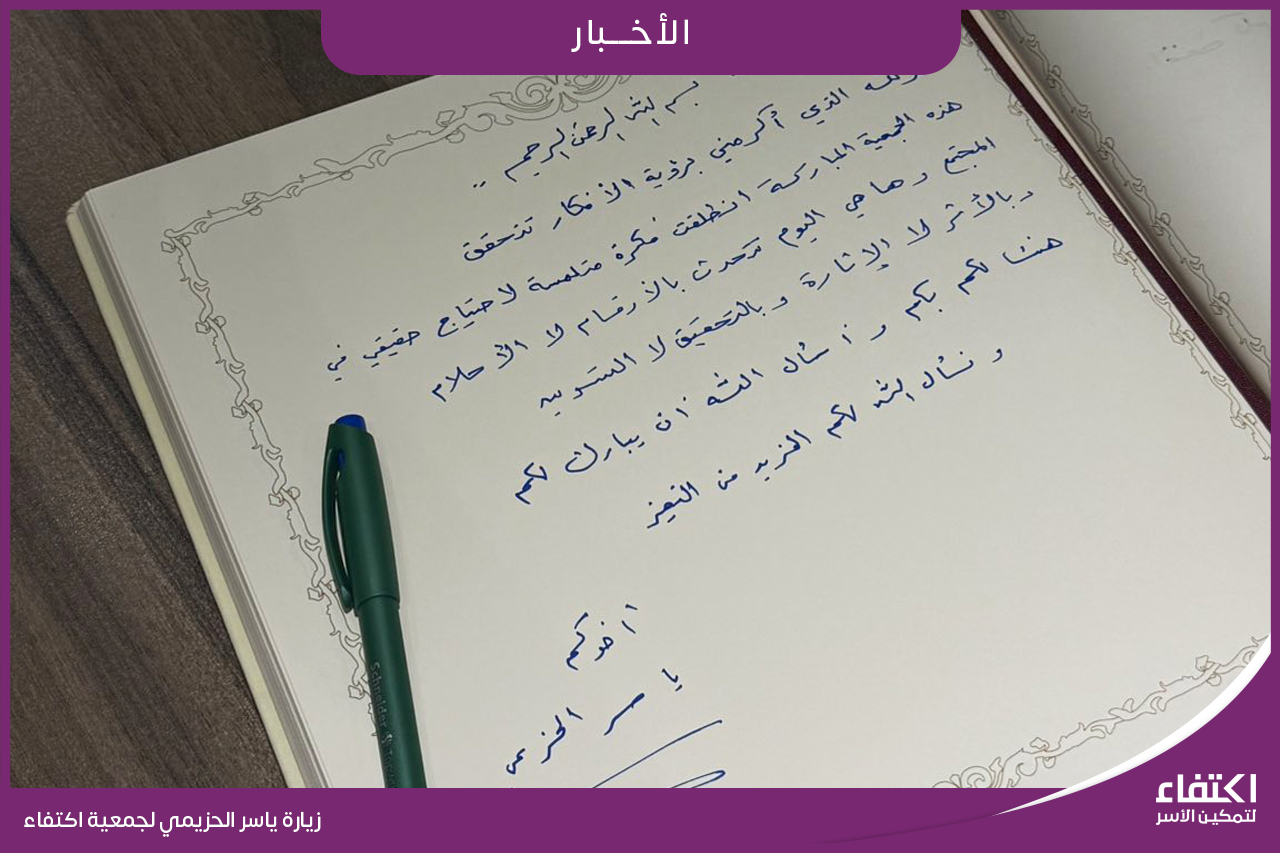 الأخـــبار
بسم الله الرحمن الرحيم ..
الذي أكرمني برؤية الأفكار تتحقق
هذه الجمعية المباركة انطلقت فكرة متلمسة لاحتياج حقيقي في
المجتمع وها هي اليوم تتحدث بالأرقام لا الأحلام
وبالأثر لا الإثارة وبالتحقيق لا التسويف
هنيئا لكم بكم وأسأل الله أن يبارك لكم
ونسأل الله لكم المزيد من التميز
أخوكم
ياسر الحزيمي
Schneider
اكتفاء
لتمكين الأسر
زيارة ياسر الحزيمي لجمعية اكتفاء